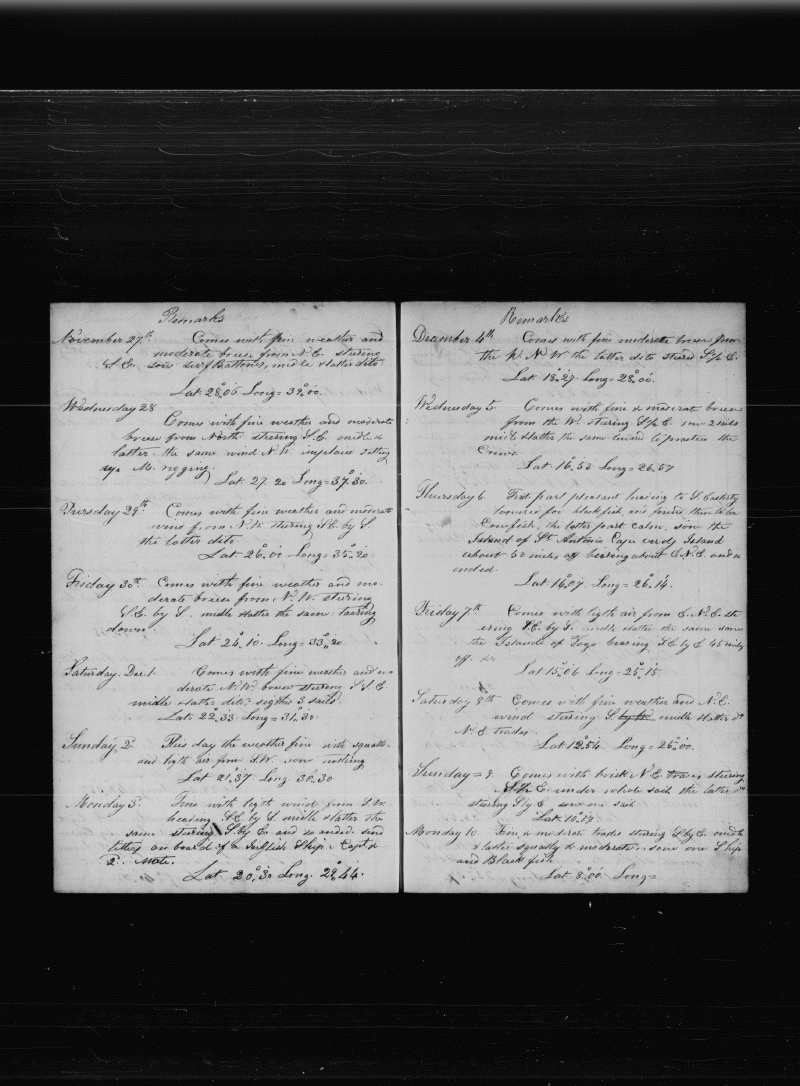 Remarks
November 27th Comes with fine weather and
moderate breese from N.E. steering
S.E. midle & latter dito
Lat 28°,06 Long = 39°,00
Wednesday 28
Comes with fine weather and moderate
breese from North steering S.E. midle &
latter the same wind N.W. imployed
M. rigging
Lat 27..20 Long = 37°,30
Thursday 29th Comes with fine weather and moderate
wind from N.W. steering S.E. by S.
the latter dito
Lat 26°,00 Long = 35°,20
Friday 30th Comes with fine weather and mo-
derate breese from N.W. steering
S.E. by S. midle & latter the same tarring
down
Lat 24°,10 Long = 33°,20
Saturday Dec. 1. Comes with fine weather and mo
derate N.W. breese steering S.S.E.
midle & latter dito, 3 sails
Lat 22°,33 Long = 31°,30
Sunday 2d This day the weather fine with squalls
and ligth air from S.W. nothing
Lat 21°,37 Long. 30,30
Monday 3d Fine with ligth wind from S.W.
heading S.E. by S. midle & latter the
same steering S. by E. and so ended.
on board of a Ship. Capt &
2d Mate.
Lat 20°,30 Long. 29°,44.
Remarks
December 4th Comes with fine moderate breese from
the W.N.W. the latter dito steerd S.b.E.
Lat 18°,27 Long = 28°,00.
Wednesday 5 Comes with fine & moderat breese
from the W. steering S.b.E. saw 2 sails
midl & latter the same to practice the
Crews.
Lat 16°,53 Long = 26.57
Thursday 6 First part pleasant heading to S. Easterly
lowered for blackfish and them to be
Cowfish, the latter part calm, saw the
Island of St Antonio Cape verdy Island
about 50 miles off bearing about E.N.E. and so
ended.
Lat 16°,07 Long = 26°,14.
Friday 7th Comes with ligth air from E.N.E. ste-
ering S.E. by S. midle & latter the same
the Islands of Fogo bearing S.E. by E 45 miles
off
Lat 15°,06 Long = 25°,15
Saturday 8th Comes with fine weather and N.E.
wind steering S. by E. midle & latter do
N.E. trades.
Lat 12°,54 Long = 26°,00.
Sunday = 9. Comes with brisk N.E. traves steering
S.b.E. under whole sail the latter do
steering S by E saw one sail
Lat. 10°,17
Monday 10. Fine & moderate trades steering S. by E. midle
& latter squally & moderate. saw one Ship
and Black fish
Lat 8°,00 Long =